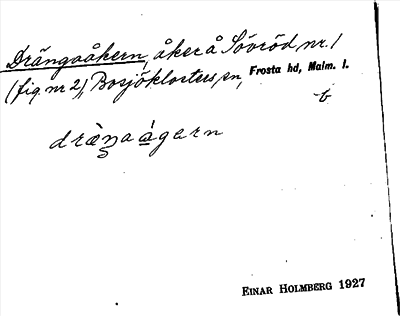 Drängaåkern, åker å Sövröd nr. 1
(fig. nr 2), Bosjöklosters sn, Frosta hd, Malm. l.
b
dræ̀ŋaágern
EINAR HOLMBERG 1927